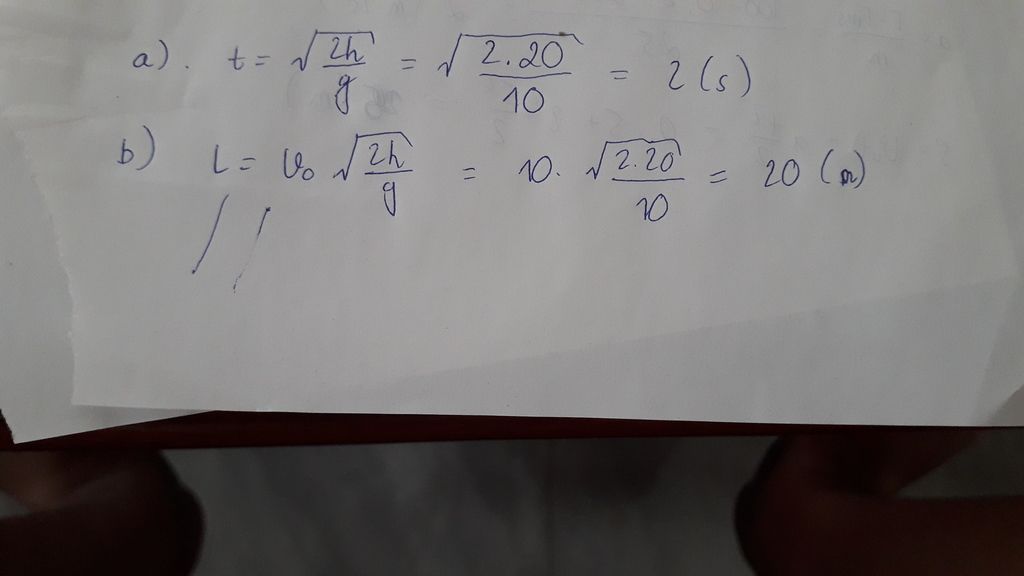 a). t = √(2h/g) = √(2.20/10) = 2 (s)
b) L = v₀ √(2h/g) = 10. √(2.20/10) = 20 (m)